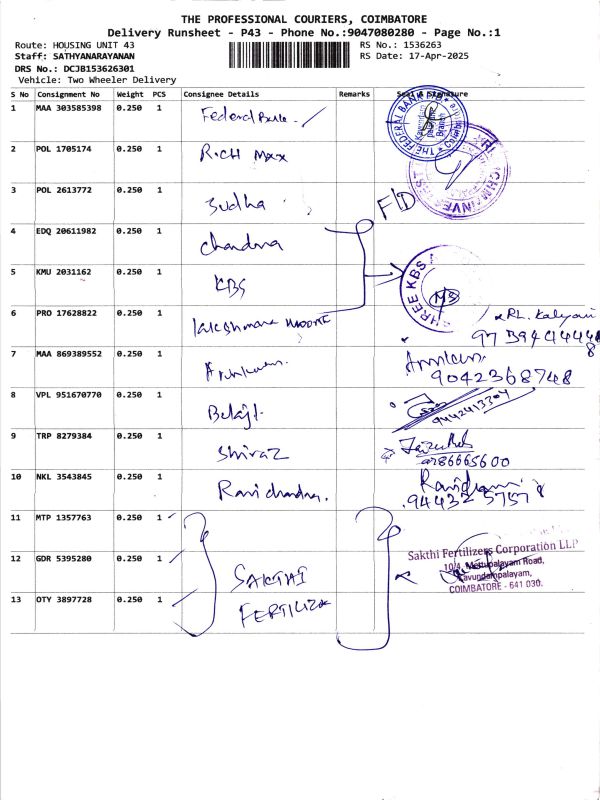 THE PROFESSIONAL COURIERS, COIMBATORE
Delivery Runsheet - P43 - Phone No.:9047080280 - Page No.:1
Route: HOUSING UNIT 43
RS No.: 1536263
Staff: SATHYANARAYANAN
RS Date: 17-Apr-2025
DRS No.: DCJB153626301
Vehicle: Two Wheeler Delivery
S No Consignment No Weight PCS Consignee Details Remarks Seal & Signature
1 MAA 303585398 0.250 1 Federal Bank
THE FEDERAL BANK
2 POL 1705174 0.250 1 Rich Max
3 POL 2613772 0.250 1 Sudha
F/D
4 EDQ 20611982 0.250 1 Chandra
5 KMU 2031162 0.250 1 KBS
SHREE KBS
6 PRO 17628822 0.250 1 Lakshmana
RL. Kalyani
7 MAA 869389552 0.250 1
9042368748
8 VPL 951670770 0.250 1 Balaji
9442413304
9 TRP 8279384 0.250 1 Shiraz
10 NKL 3543845 0.250 1 Ravichandran.
11 MTP 1357763 0.250 1
12 GDR 5395280 0.250 1 SAKTHI
Sakthi Fertilizers Corporation LLP
10/4, Mettupalayam Road,
Kavundampalayam,
COIMBATORE - 641 030.
13 OTY 3897728 0.250 1 FERTILIZER